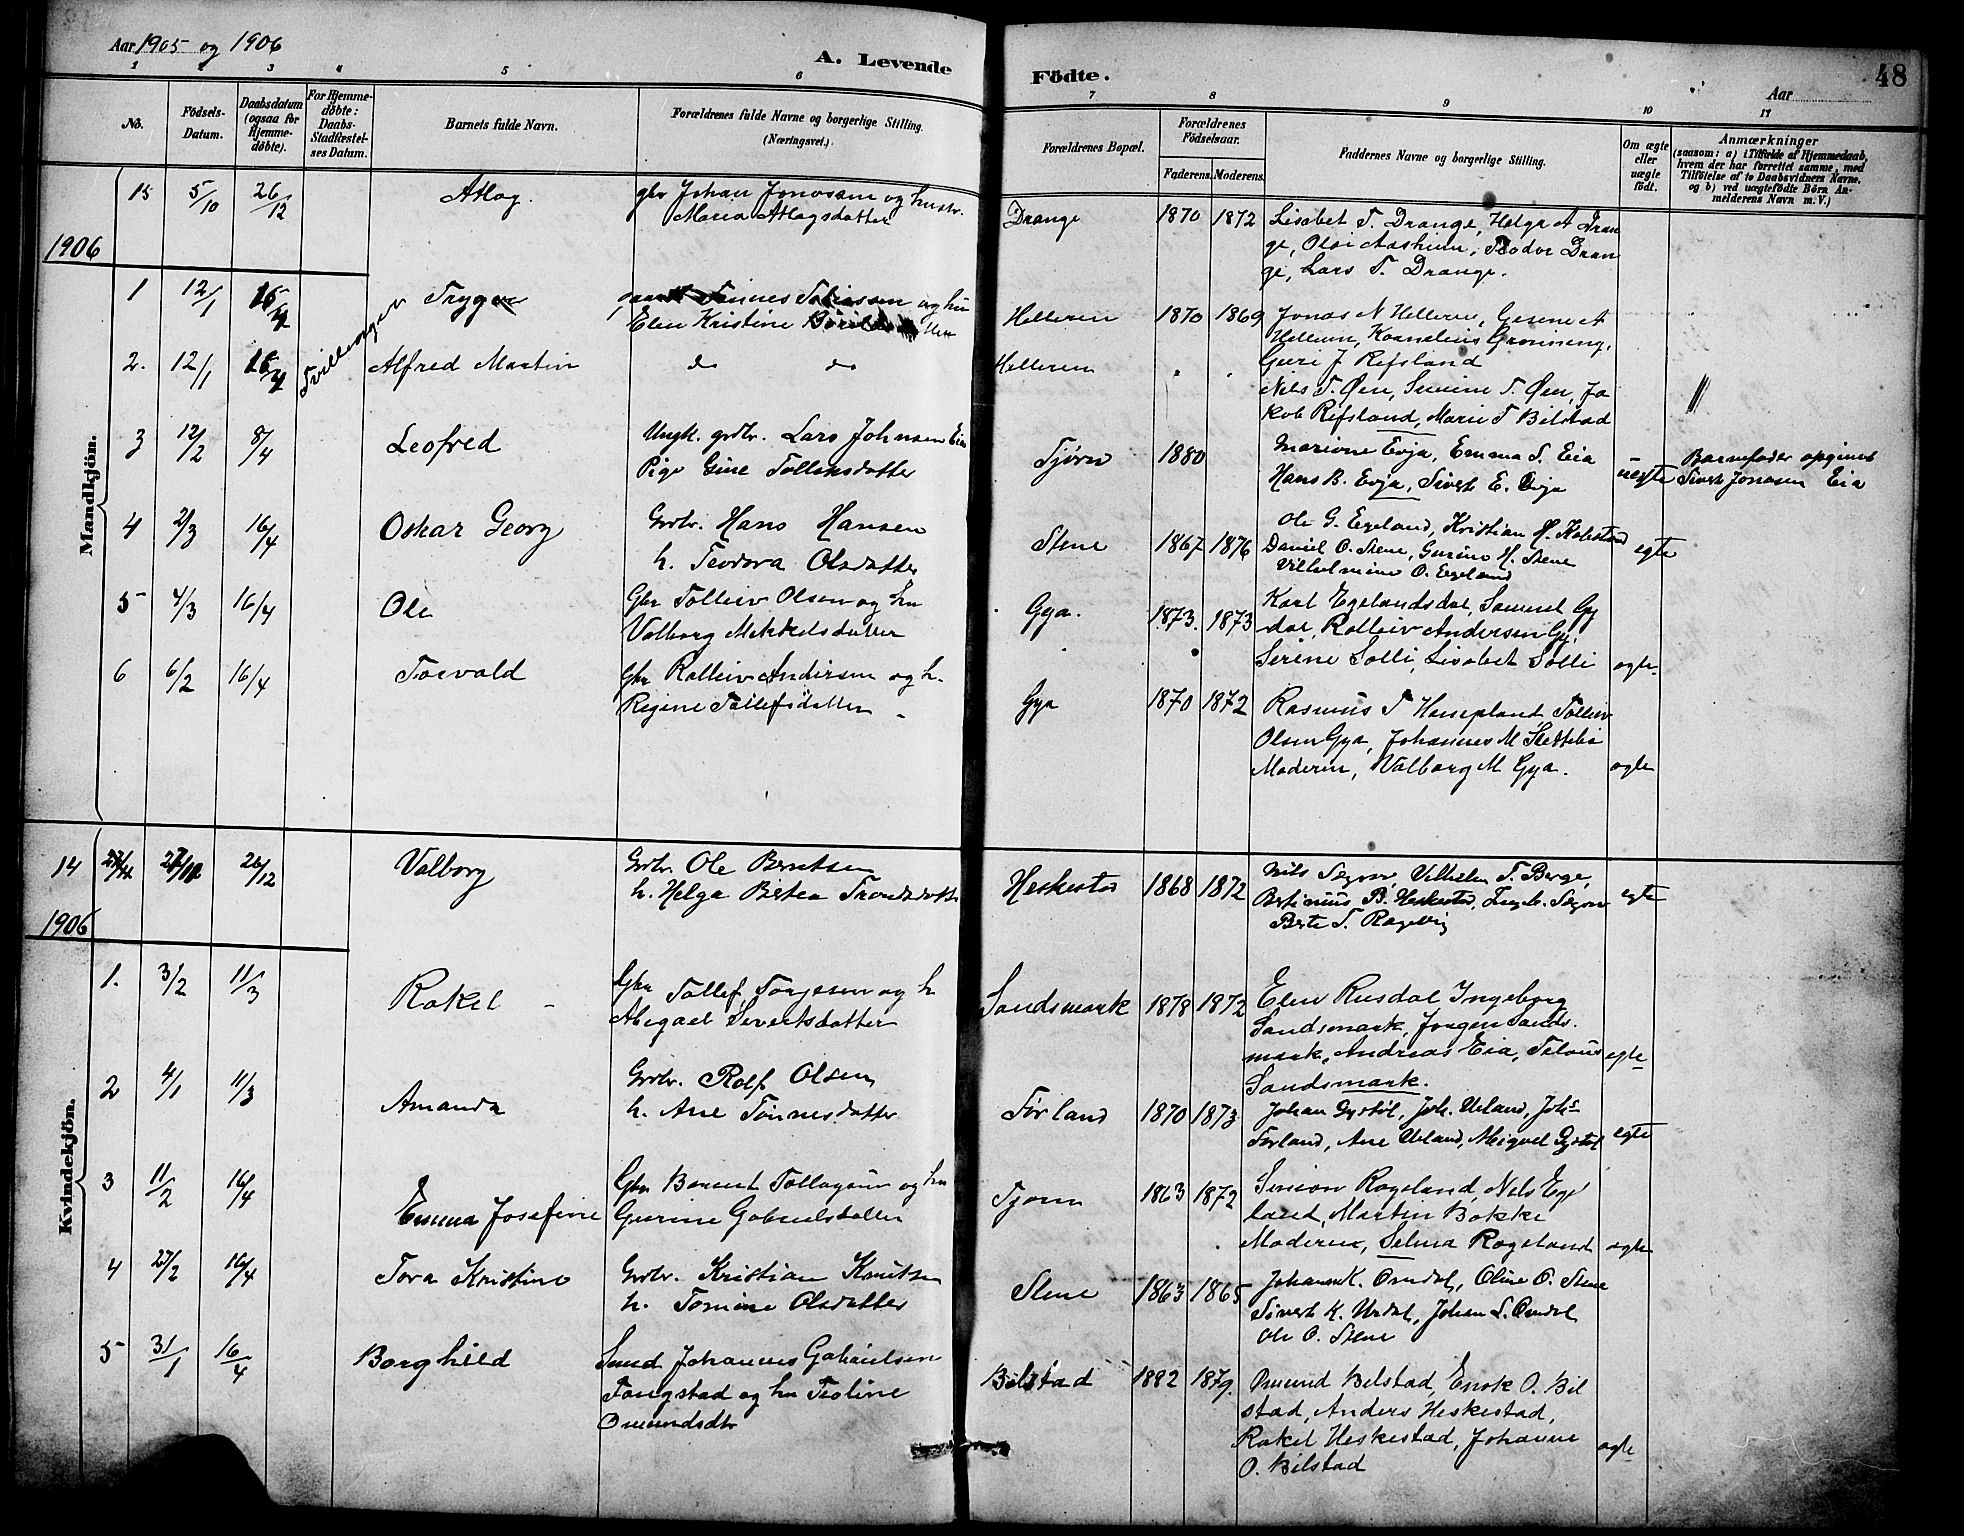 Aar 1905 og 1906
A. Levende Födte.
Aar
48
1 2 3 4 5 6 7 8 9 10 11
No.
Födsels-Datum.
Daabsdatum (ogsaa for Hjemme-døbte).
For Hjemme-døbte: Daabs-Stadfæstel-ses Datum.
Barnets fulde Navn.
Forældrenes fulde Navne og borgerlige Stilling.
(Næringsvei.)
Forældrenes Bopæl.
Forældrenes Födselsaar.
Faderens. Moderens.
Faddernes Navne og borgerlige Stilling.
Om ægte eller uægte födt.
Anmærkninger
(saasom: a) i Tilfælde af Hjemmedaab, hvem der har forrettet samme, med Tilföielse af to Daabsvidners Navne, og b) ved uægtefödte Börn Anmelderens Navn m. V.)
Mandkjön.
15 5/10 26/12 Atlag. gbr Johan Jonassen og hustr.
Maria Atlagsdatter
Drange 1870 1872 Lisabet T. Drange, Helga A Dran
ge, Olai Aasheim, Teodor Dran
ge, Lars T. Drange.
1906
Tvillinger
1 12/1 16/4 Trygve Tønnes Tobiassen og hu
Elen Kristine
Helleren 1870 1869 Jonas N Helleren, Gesine A
Helleren, Kornelius Grønneng,
Guri J Refsland
2. 12/1 16/4 Alfred Martin do do
Helleren
Nils T. Øen, Simine T. Øen, Ja
kob Refsland, Marie T Bilstad
3 12/2 8/4 Leofred Ungk. grdbr. Lars Johnsen Eia
Pige Gine Tollaksdatter
Tjørn 1880 Marione Evja, Emma S. Eia
Hans B. Evja, Sivert E. Evja
uegte Barnefader opgivet
Sivert Jonasen Eia
4 2/3 16/4 Oskar Georg Grdbr. Hans Hansen
h. Teodora Olsdatter
Stene 1867 1876 Ole G. Egeland, Kristian H.
Daniel O. Stene, Gurine H. Stene
Vilhelmine O. Egeland
egte
5 4/3 16/4 Ole Gbr Tolleiv Olsen og hu
Valborg Mikkelsdatter
Gya. 1873. 1873 Karl Egelandsdal, Samuel Gy
dal, Rolleiv Andersen Gy.
Serine Solli, Lisabet Solli
ægte
6 6/2 16/4 Torvald Gbr Rolleiv Andersen og h.
Regine Tollefsdatter
Gya 1870 1872 Rasmus T Haugland, Tolleiv
Olsen Gya, Johannes M Slettebø
Moderen, Valborg M Gya.
ægte
Kvindekjön.
14 27/10 26/12 Valborg Grdbr. Ole Berntsen
h. Helga Bertea Trondsdatter
Heskestad 1868 1872 Nils Segem, Vilhelm T. Berge,
Bertinius B. Heskestad, Ingb. Segem
Berte T. Ragevig
egte
1906
1. 3/2 11/3 Rakel Gbr Tollef Torgesen og h
Abigael Sivertsdatter
Sandsmark 1878 1872 Elen Rusdal Ingeborg
Sandsmark, Jørgen Sands.
mark, Andreas Eia,
Sandsmark.
egte
2 4/1 11/3 Amanda Grdbr. Rolf Olsen
h. Ane Tønnesdatter
Tørland 1870 1873 Johan Gystøl, Joh. Ueland, Johs
Tørland, Ane Ueland,
egte
3 11/2 16/4 Emma Josefine Gbr Berent Tollagsen og hu
Gurine Gabrielsdatter
Tjørn 1863 1872 Simon Rogsland, Nils Ege
land, Marten Bakke
Moderen, Selma Rogsland
ægte
4 27/2 16/4 Tora Kristine Grdbr. Kristian Knutsen
h. Tomine Olsdatter
Stene 1863 1865 Johan K. Omdal, Oline O. Stene
Sivert K. Urdal, Johan S. Omdal
Ole O. Stene
5 31/1 16/4 Borghild Smed Johannes Gabrielsen
Tongstad og hu Teoline
Omundsdtr
Bilstad 1882 1879. Omund Bilstad, Enok O. Bil
stad, Anders Heskestad,
Rakel Heskestad, Johanne
O. Bilstad
ægte